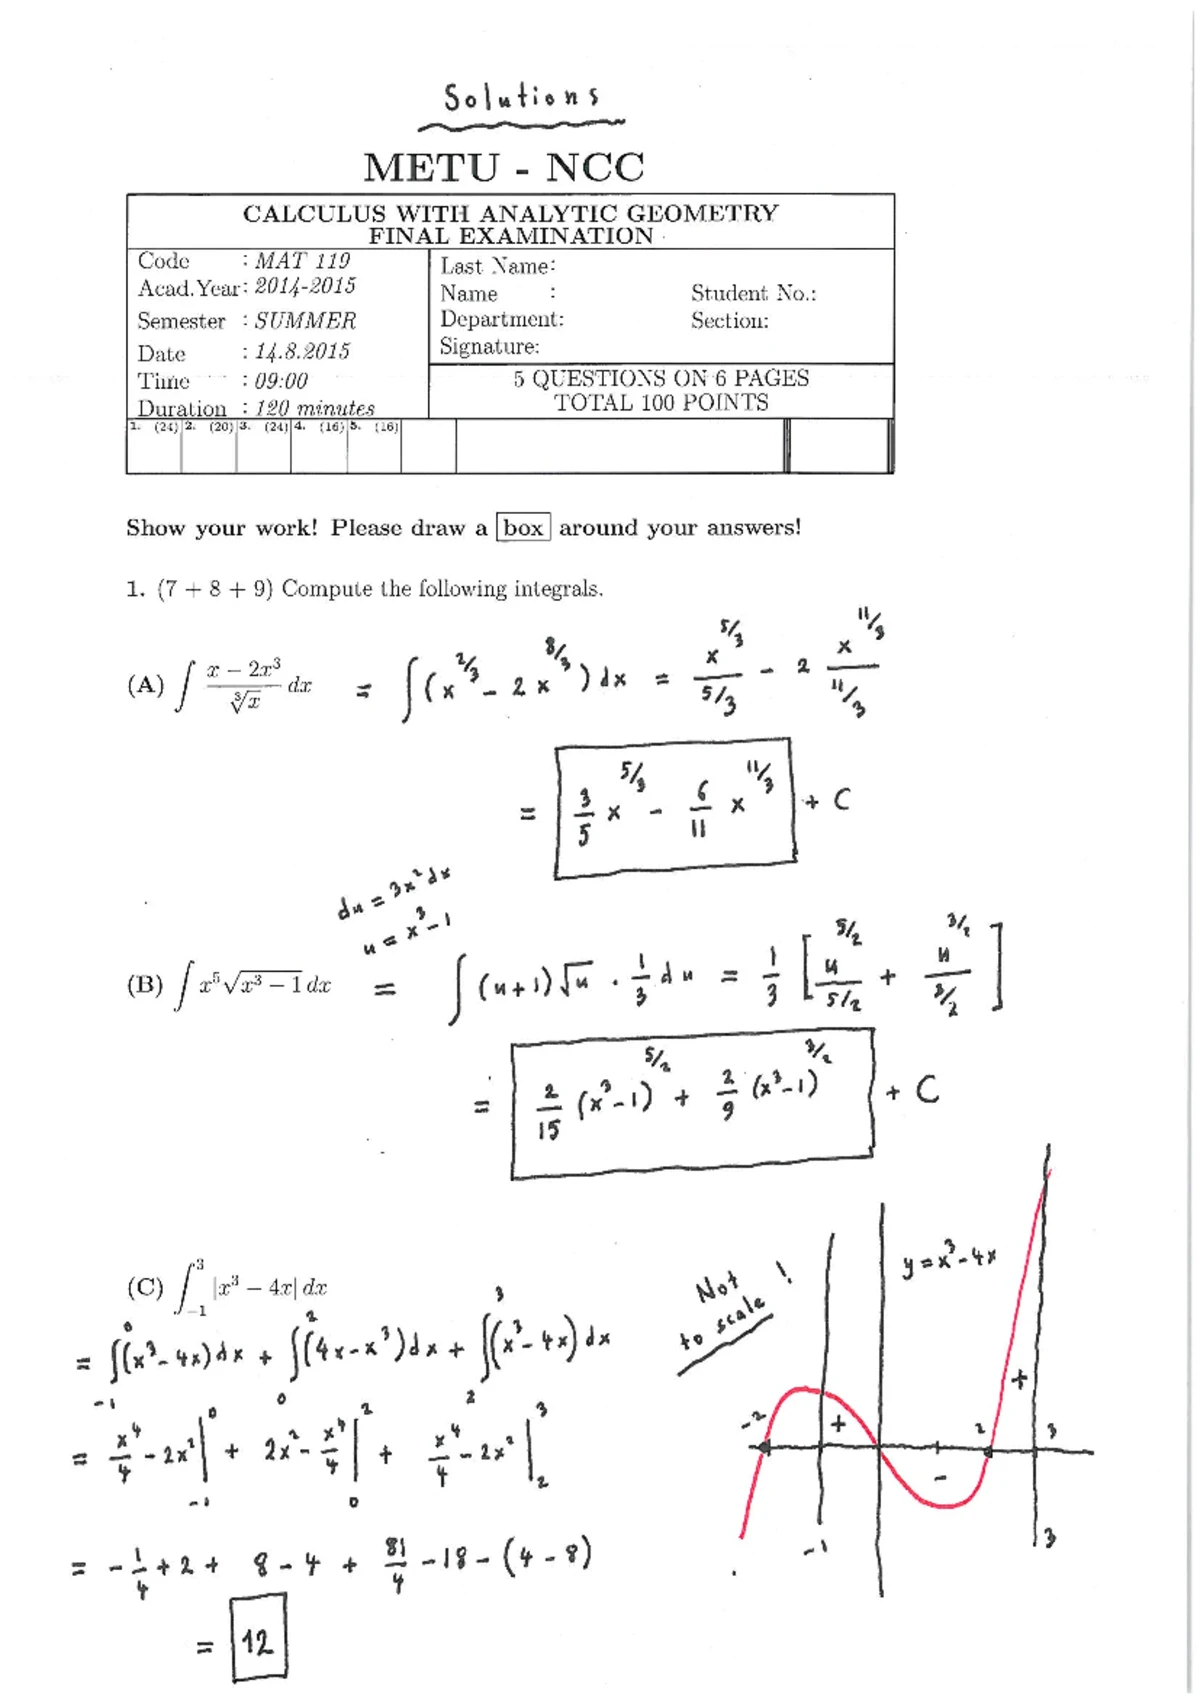 Solutions
METU - NCC
CALCULUS WITH ANALYTIC GEOMETRY
FINAL EXAMINATION
Code : MAT 119
Acad.Year: 2014-2015
Semester : SUMMER
Date : 14.8.2015
Time : 09:00
Duration : 120 minutes
Last Name:
Name :
Department:
Signature:
Student No.:
Section:
5 QUESTIONS ON 6 PAGES
TOTAL 100 POINTS
1. (24) 2. (20) 3. (24) 4. (16) 5. (16)
Show your work! Please draw a box around your answers!
1. (7 + 8 + 9) Compute the following integrals.
(A) ∫ (x − 2x³)/∛x dx = ∫(x^{2/3} − 2x^{8/3}) dx = x^{5/3}/(5/3) − 2 x^{11/3}/(11/3)
= 3/5 x^{5/3} − 6/11 x^{11/3} + C
du = 3x²dx
u = x³−1
(B) ∫ x⁵√(x³ − 1) dx = ∫(u+1)√u · 1/3 du = 1/3 [u^{5/2}/(5/2) + u^{3/2}/(3/2)]
= 2/15 (x³−1)^{5/2} + 2/9 (x³−1)^{3/2} + C
(C) ∫_{−1}^{3} |x³ − 4x| dx
= ∫_{−1}^{0}(x³−4x)dx + ∫_{0}^{2}(4x−x³)dx + ∫_{2}^{3}(x³−4x)dx
= x⁴/4 − 2x² |_{−1}^{0} + 2x² − x⁴/4 |_{0}^{2} + x⁴/4 − 2x² |_{2}^{3}
= −1/4 + 2 + 8 − 4 + 81/4 − 18 − (4 − 8)
= 12
Not to scale !
y = x³−4x
−2 + − 2 + 3
−1 3